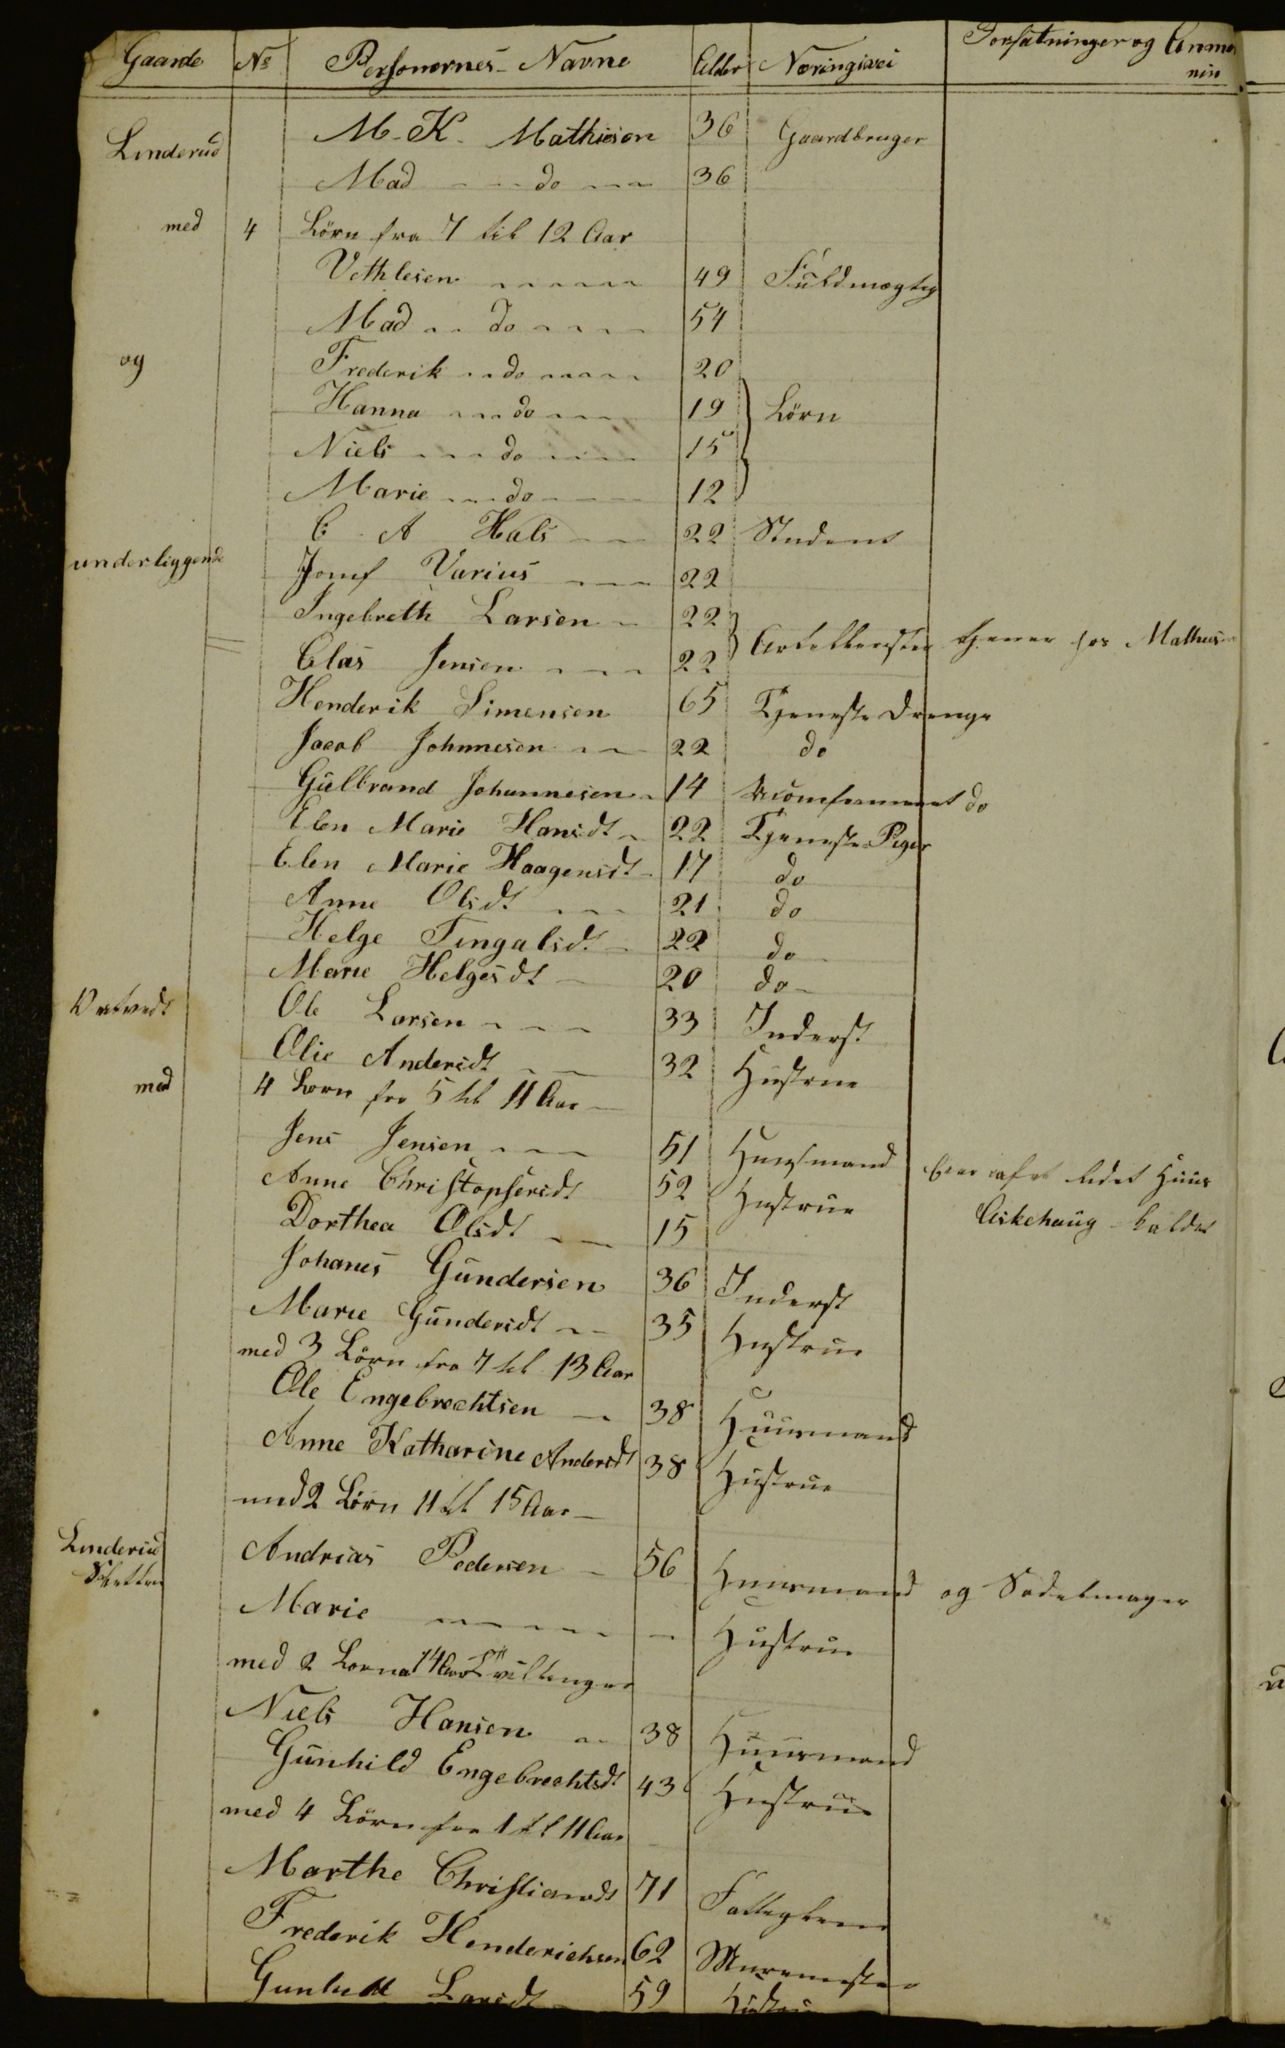 Gaarde No Personernes Navne Alder Næringsvei Forsatninger og Anmær
nin
Linderud M. K. Mathiesen 36 Gaardbruger
Mad do 36
med 4 Börn fra 7 til 12 Aar
Vethlesen 49 Fuldmægtig
Mad do 54
og Frederik do 20
Hanna do 19 Börn
Niels do 15
Marie do 12
C A Hals 22 Student
underliggende Jomf Varius 22
Ingebreth Larsen 22
Clas Jensen 22 tjener hos Mathies
Henderik Simensen 65 Tjeneste Drenge
Jacob Johnnesen 22 do
Gulbrand Johannesen 14 do
Elen Marie Hansdt 22 Tjeneste Piger
Elen Marie Haagensdt 17 do
Anne Olsdt 21 do
Helge Tingalsdt 22 do
Marie Helgesdt 20 do
Vetvedt Ole Larsen 33 Inderst
Olie Andersdt 32 Hustrue
med 4 Börn fra 5 til 11 Aar
Jens Jensen 51 Huusmand lidet Huus
Anne Christophersdt 52 Hustrue Askehaug kaldet
Dorthea Olsdt 15
Johanes Gundersen 36 Inderst
Marie Gundersdt 35 Hustrue
med 3 Börn fra 7 til 13 Aar
Ole Engebrechtsen 38 Huusmand
Anne Katharine Andersdt 38 Hustrue
med 2 Börn 11 til 15 Aar
Linderud
Sletten Andreas Pedersen 56 Huusmand og Sadelmager
Marie Hustrue
med 2 Börn a 14 Aar Tvillinger
Niels Hansen 38 Huusmand
Gunhild Engebrechtsdt 43 Hustrue
med 4 Börn fra 1 til 11 Aar
Marthe Christiansdt 71 Fattiglem
Frederik Henderichsen 62 Muurmester
Gunhild Larsdt 59 Hustrue